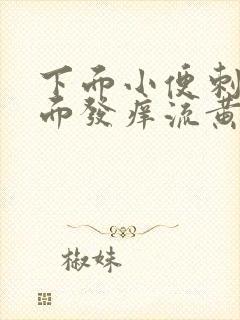 下而小便刺
而發痒流黃
椒妹